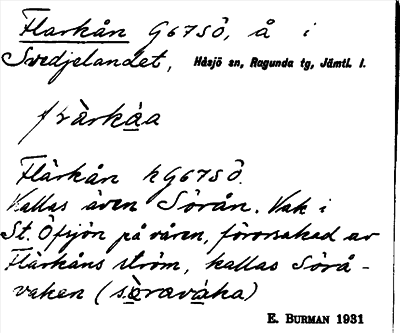 Flarkån G67SÖ, å i
Svedjelandet, Håsjö sn, Ragunda tg, Jämtl. l.
flàrkáa
Flärkån k G67SÖ.
Kallas även Sörån. Vak i
St. Öfsjön på våren, förorsakad av
Flärkåns ström, kallas Sörå-
vaken (sö̀raváka)
E. BURMAN 1931